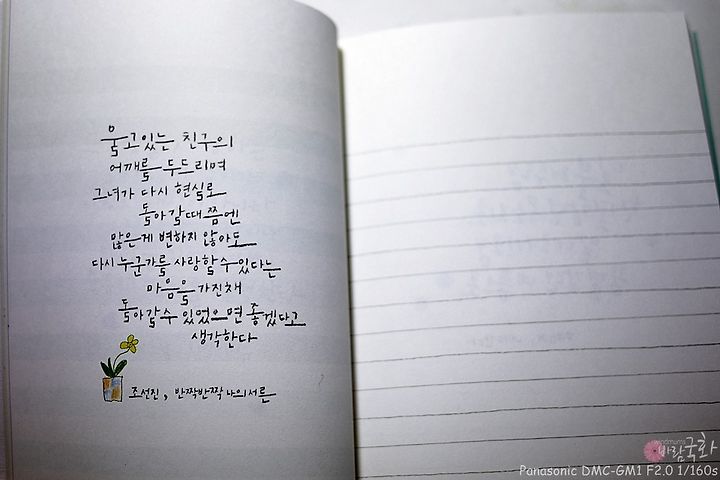 울고있는 친구의
어깨를 두드리며
그녀가 다시 현실로
돌아갈때쯤엔
많은게 변하지 않아도
다시 누군가를 사랑할 수 있다는
마음을 가진채
돌아갈 수 있었으면 좋겠다고
생각한다
조선진, 반짝반짝 나의 서른
windmums
바람국화
Panasonic DMC-GM1 F2.0 1/160s